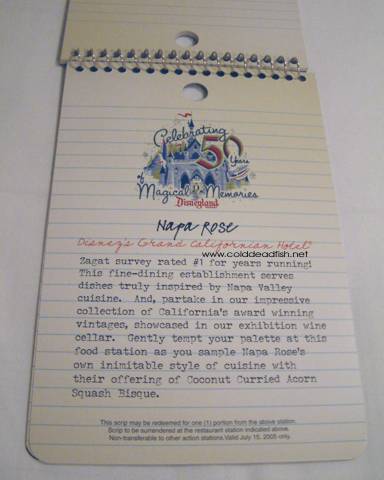 Celebrating
50 Years
of Magical Memories
Disneyland
Napa Rose
Disney's Grand Californian Hotel®
www.colddeadfish.net
Zagat survey rated #1 for years running!
This fine-dining establishment serves
dishes truly inspired by Napa Valley
cuisine. And, partake in our impressive
collection of California's award winning
vintages, showcased in our exhibition wine
cellar. Gently tempt your palette at this
food station as you sample Napa Rose's
own inimitable style of cuisine with
their offering of Coconut Curried Acorn
Squash Bisque.
This scrip may be redeemed for one (1) portion from the above station.
Scrip to be surrendered at the restaurant station indicated above.
Non-transferable to other action stations. Valid July 15, 2005 only.